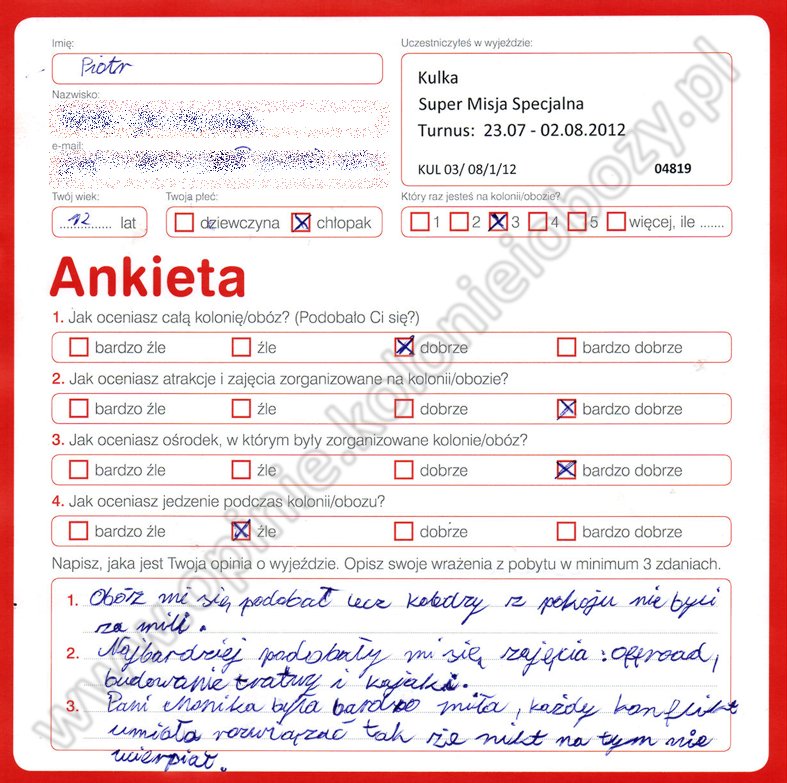 Imię:
Piotr
Uczestniczyłeś w wyjeździe:
Kulka
Super Misja Specjalna
Turnus: 23.07 - 02.08.2012
KUL 03/ 08/1/12 04819
Nazwisko:
e-mail:
Twój wiek:
12 lat
Twoja płeć:
dziewczyna chłopak
Który raz jesteś na kolonii/obozie?
1 2 3 4 5 więcej, ile .......
Ankieta
1. Jak oceniasz całą kolonię/obóz? (Podobało Ci się?)
bardzo źle źle dobrze bardzo dobrze
2. Jak oceniasz atrakcje i zajęcia zorganizowane na kolonii/obozie?
bardzo źle źle dobrze bardzo dobrze
3. Jak oceniasz ośrodek, w którym były zorganizowane kolonie/obóz?
bardzo źle źle dobrze bardzo dobrze
4. Jak oceniasz jedzenie podczas kolonii/obozu?
bardzo źle źle dobrze bardzo dobrze
Napisz, jaka jest Twoja opinia o wyjeździe. Opisz swoje wrażenia z pobytu w minimum 3 zdaniach.
1. Obóz mi się podobał lecz koledzy z pokoju nie byli
za mili.
2. Najbardziej podobały mi się zajęcia: offroad,
budowanie tratwy i kajaki.
3. Pani Monika była bardzo miła, każdy konflikt
umiała rozwiązać tak że nikt na tym nie
ucierpiał.
www.opinie.kolonieiobozy.pl